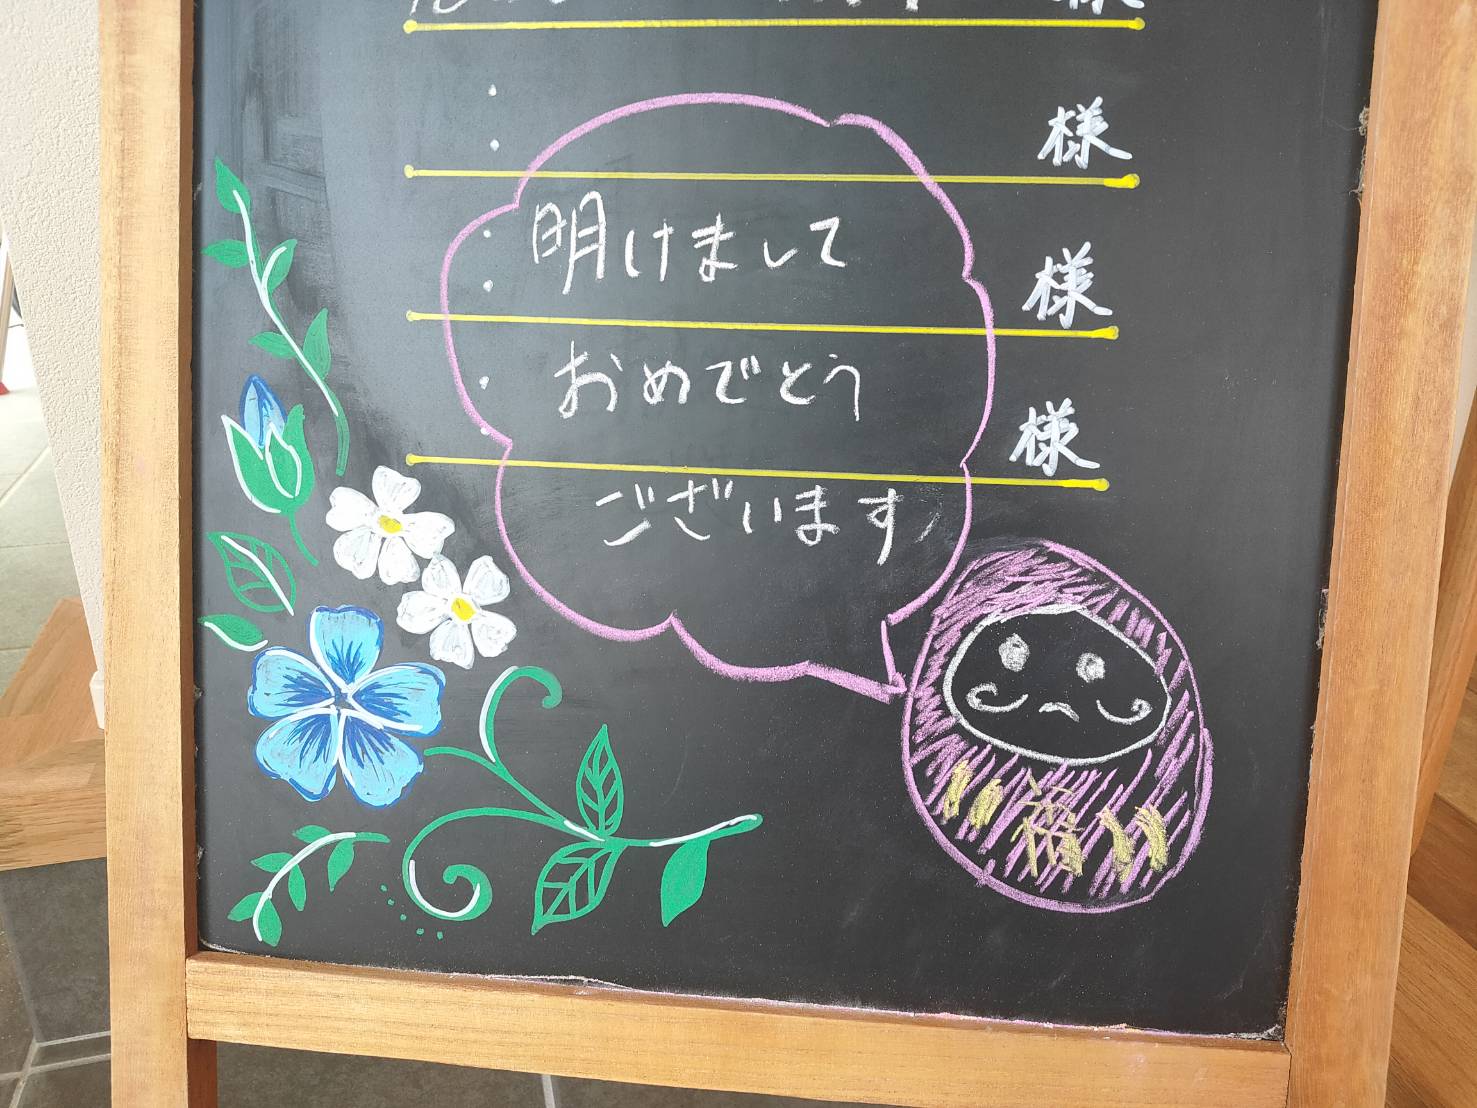 様
:
様
:
様
:
様
明けまして
おめでとう
ございます
福